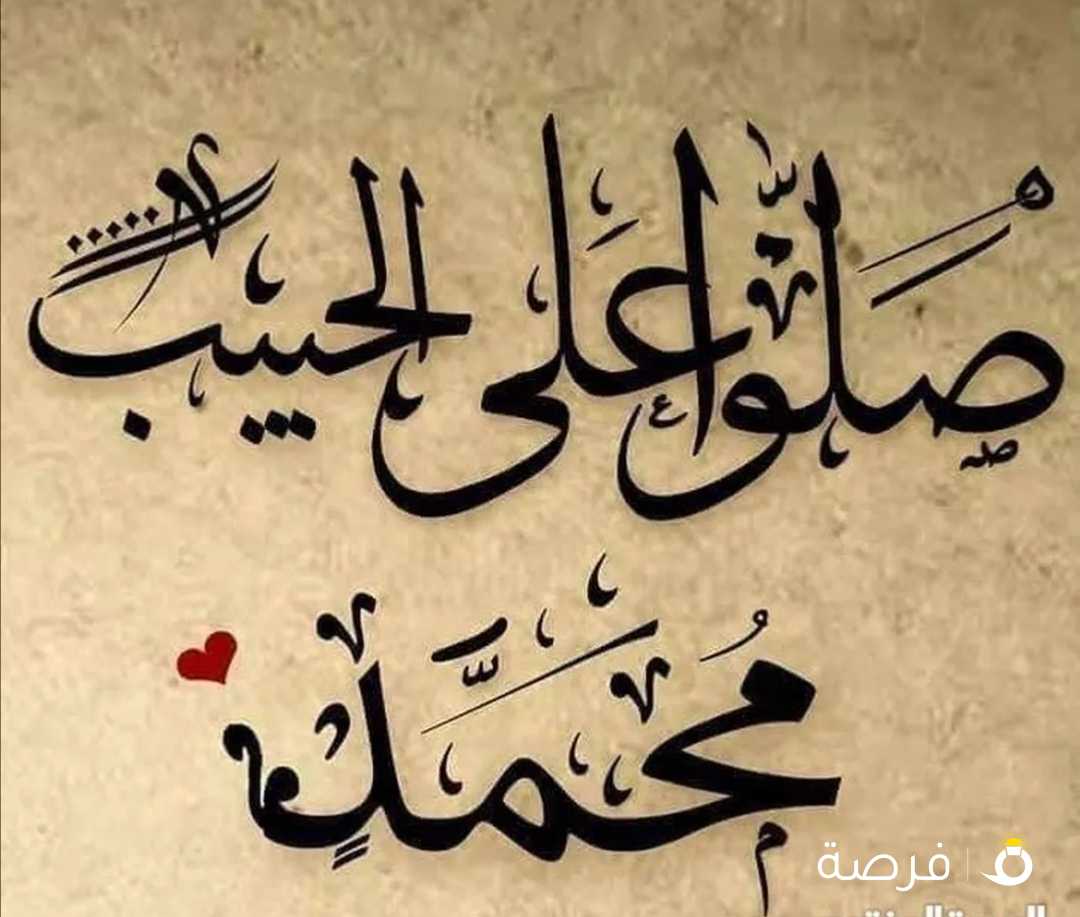 صَلُّوا عَلَى الحبيب
مُحَمَّدٍ
فرصة